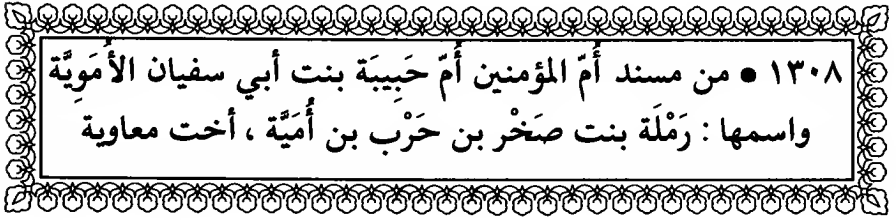 ١٣٠٨ • من مسند أُمّ المؤمنين أُمّ حَبِيبَة بنت أبي سفيان الأُمَوِيَّة
واسمها : رَمْلَة بنت صَخْر بن حَرْب بن أُمَيَّة ، أخت معاوية